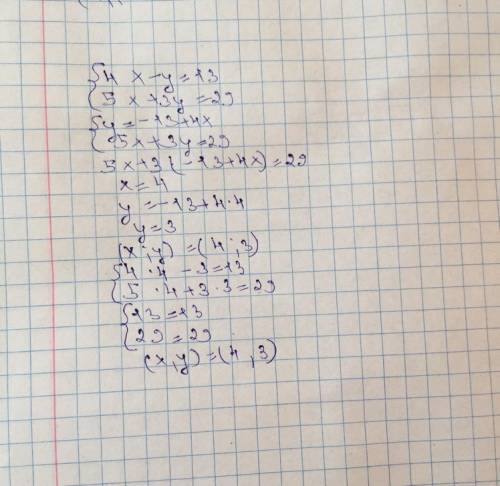 {4 x - y = 13
{5 x + 3y = 29
{y = -13 + 4x
{5x + 3y = 29
5x + 3 (-13 + 4x) = 29
x = 4
y = -13 + 4·4
y = 3
(x ; y) = (4 ; 3)
{4 · 4 - 3 = 13
{5 · 4 + 3 · 3 = 29
{13 = 13
{29 = 29
(x, y) = (4 , 3)